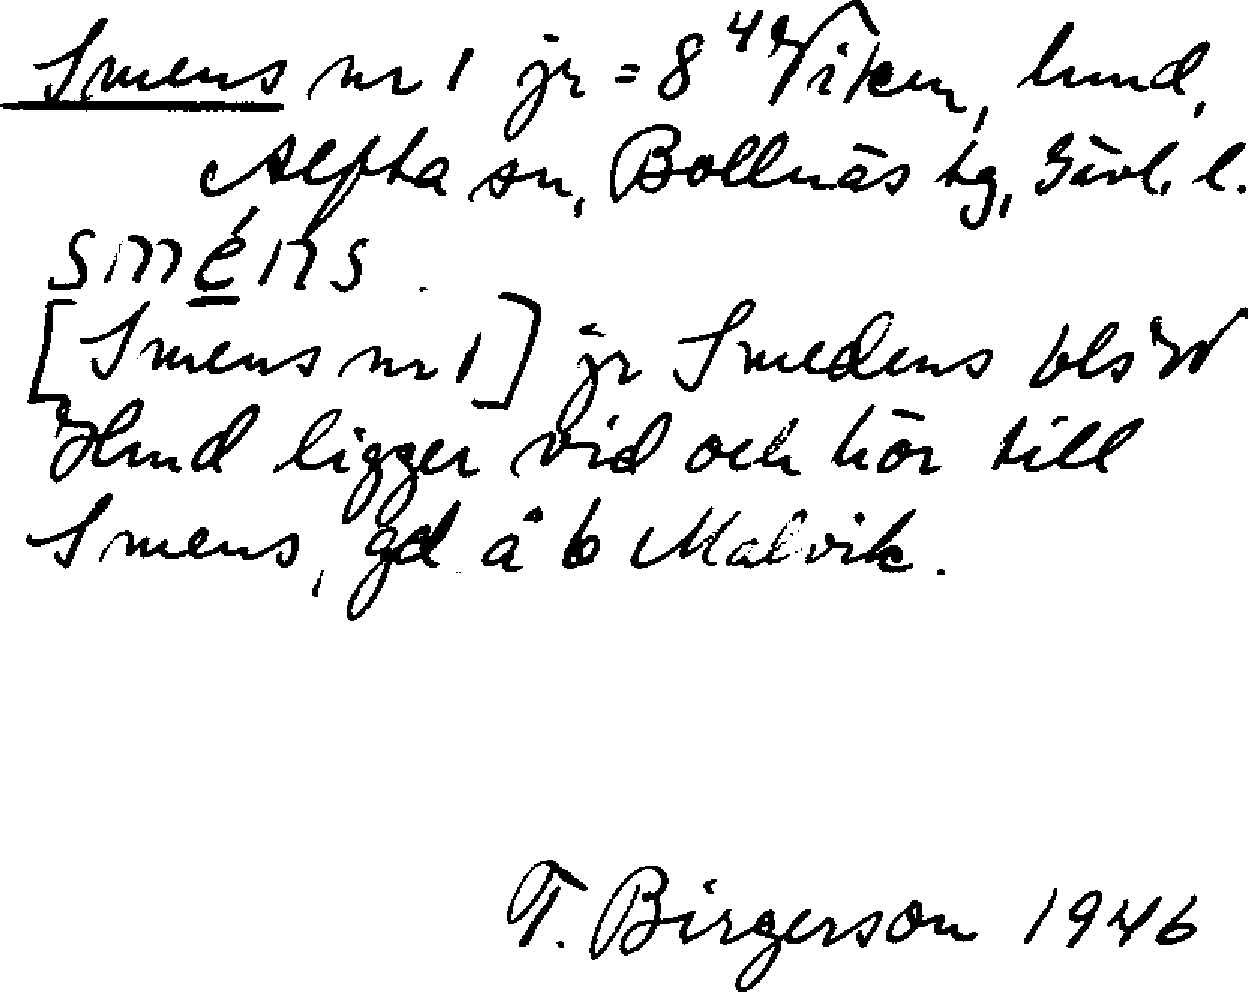 Smens nr 1 jr = 8⁴ Viken, hmd,
Alfta sn, Bollnäs tg, Gävl. l.
smé̱ns.
[Smens nr 1] jr Smedens bls W
Hmd ligger vid och hör till
Smens, gd å b Malvik.
T. Birgerson 1946